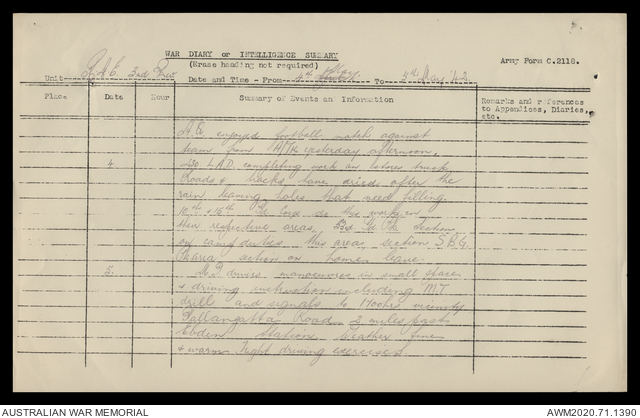 WAR DIARY or INTELLIGENCE SUMMARY
(Erase heading not required)
Army Form C.2118.
Unit R.A.E. 3rd
Date and Time - From 4th May To 4th May '42
Place Date Hour Summary of Events an Information Remarks and references to Appendices, Diaries, etc.
H.Q. enjoyed football match against
team from A/Tk yesterday afternoon.
4. L.A.D. completing work on truck
Roads & tracks have dried after the
rain leaving holes that need filling.
their respective areas. 23rd Fd Pk section
on camp duties this area, section S.B.G.
on home leave.
5. M.T. drivers manoeuvres in small spaces
& driving instruction including M.T.
drill and signals to 1700 hrs vicinity
Tallangatta Road 2 miles East
Ebden Station. Weather fine
& warm. Night driving exercises.
AUSTRALIAN WAR MEMORIAL
AWM2020.71.1390